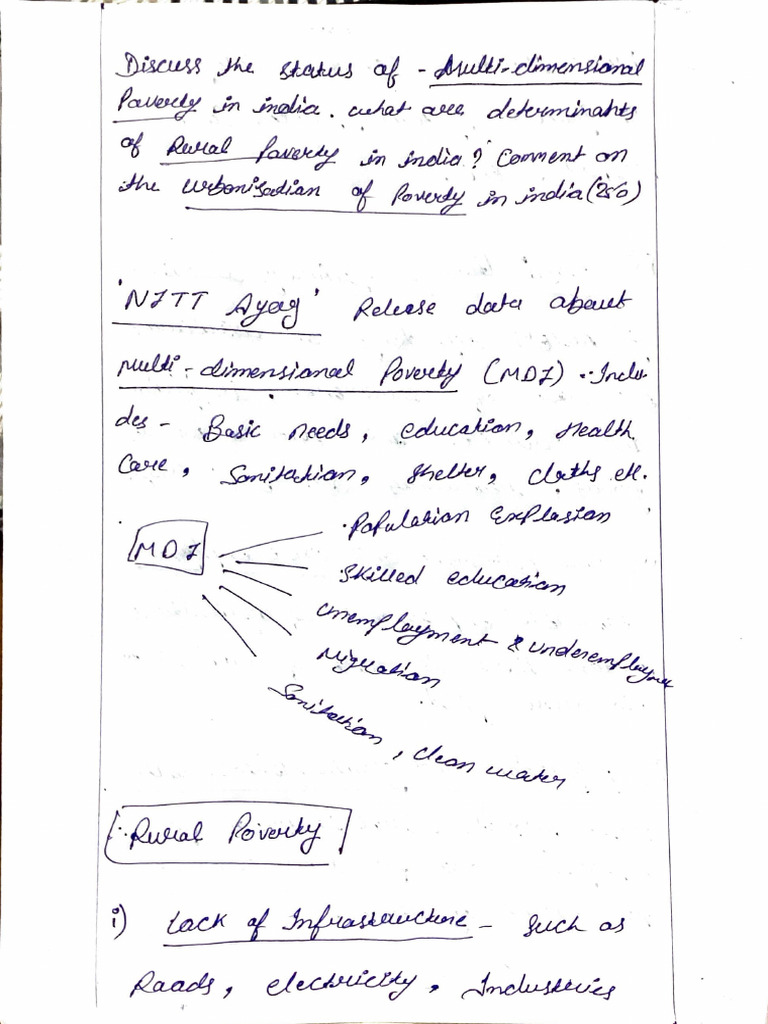 Discuss the status of - Multi-dimensional
Poverty in india. what are determinants
of Rural Poverty in india? Comment on
the urbanisation of Poverty in india (250)
'NITI Ayog' Release data about
Multi-dimensional Poverty (MDI). Inclu-
des - Basic needs, education, Health
Care, Sanitation, shelter, cloths etc.
MDI
. Population Explosion
. skilled education
unemployment & underemployment
Migration
Sanitation, clean water
Rural Poverty
i) Lack of Infrastructure - such as
Roads, electricity, Industries